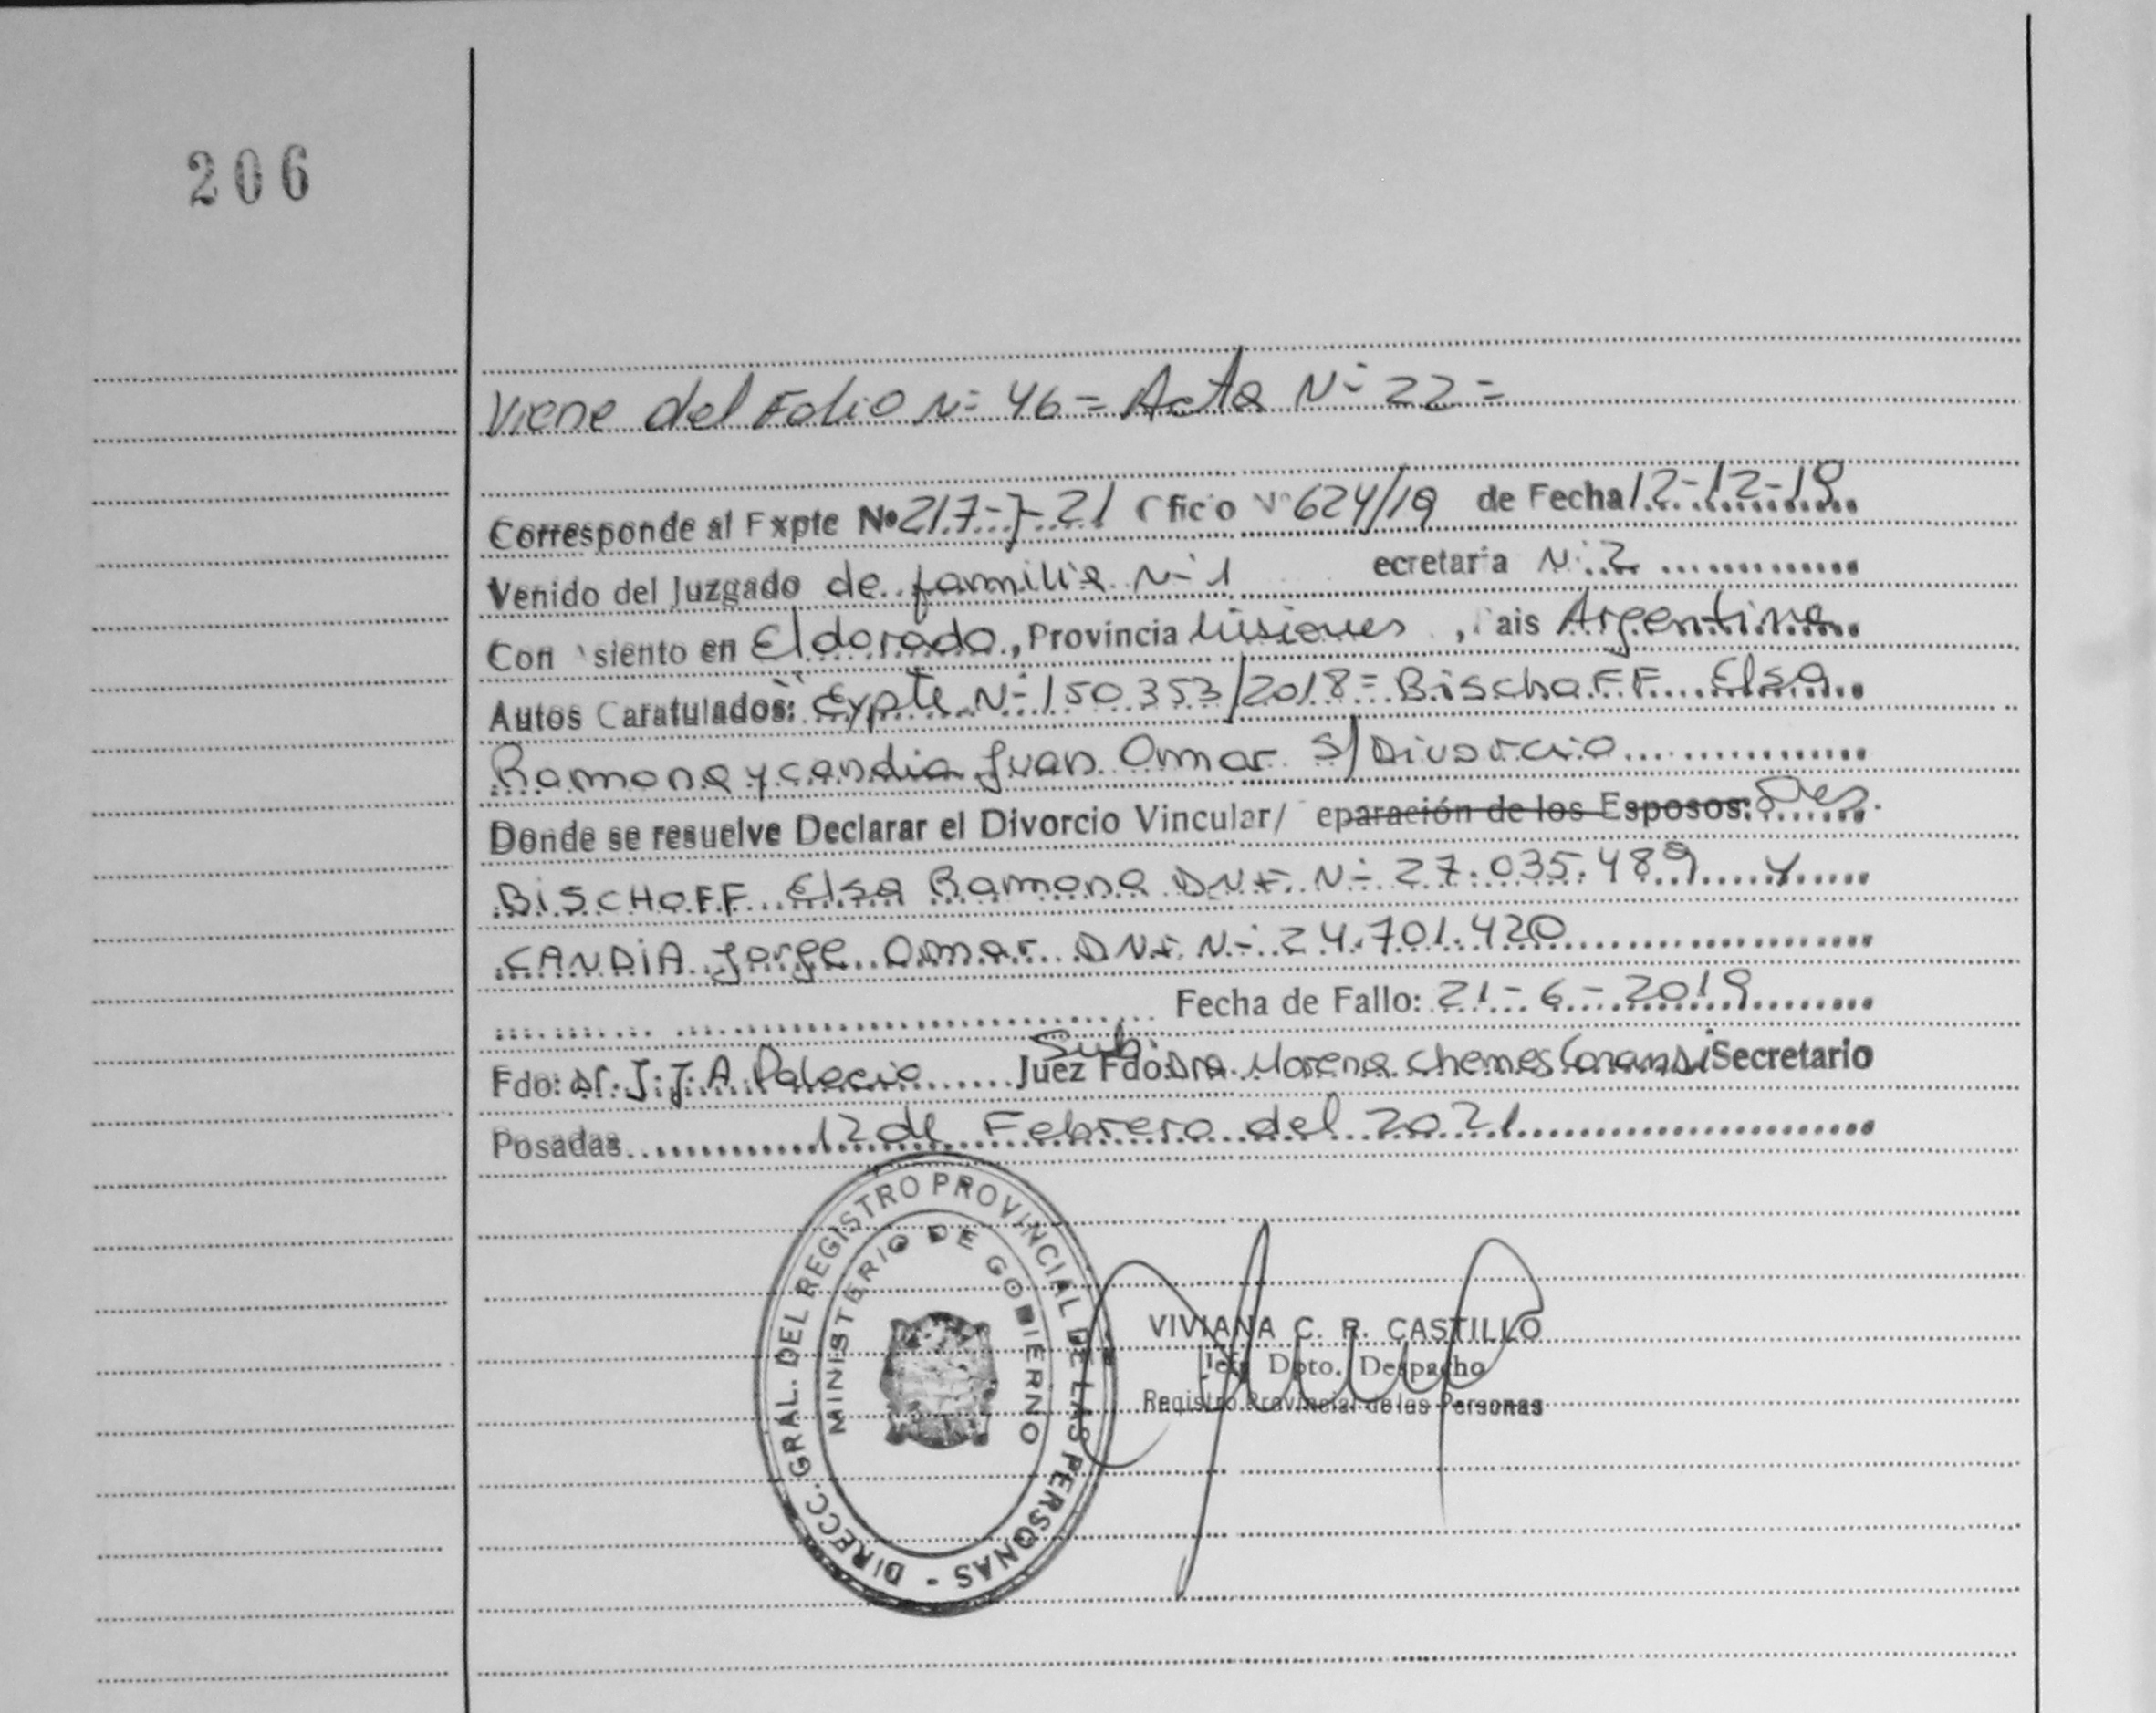 206
Viene del Folio Nº 46 = Acta Nº 22 =
Corresponde al Expte Nº 217-J-21 Oficio Nº 624/19 de Fecha 12-12-19
Venido del Juzgado de familia Nº 1 ecretaria Nº 2
Con siento en Eldorado, Provincia Misiones, Pais Argentina
Autos Caratulados: "Expte Nº 150.353/2018 = BischoFF Elsa
Ramona y candia Juan Omar S/ Divorcio
Donde se resuelve Declarar el Divorcio Vincular/ eparación de los Esposos:
BiSCHOFF Elsa Ramona DNI. Nº 27.035.489 y
CANDIA Jorge Omar DNI. Nº 24.701.420
Fecha de Fallo: 21-6-2019
Sub.
Fdo: Dr. J.J.A. Palacio Juez Fdo: Dra. Morena Chemes Secretario
Posadas 12 de Febrero del 2021
DIRECC. GRAL. DEL REGISTRO PROVINCIAL DE LAS PERSONAS -
MINISTERIO DE GOBIERNO
VIVIANA C. R. CASTILLO
Jefe Dpto. Despacho
Registro Provincial de las Personas